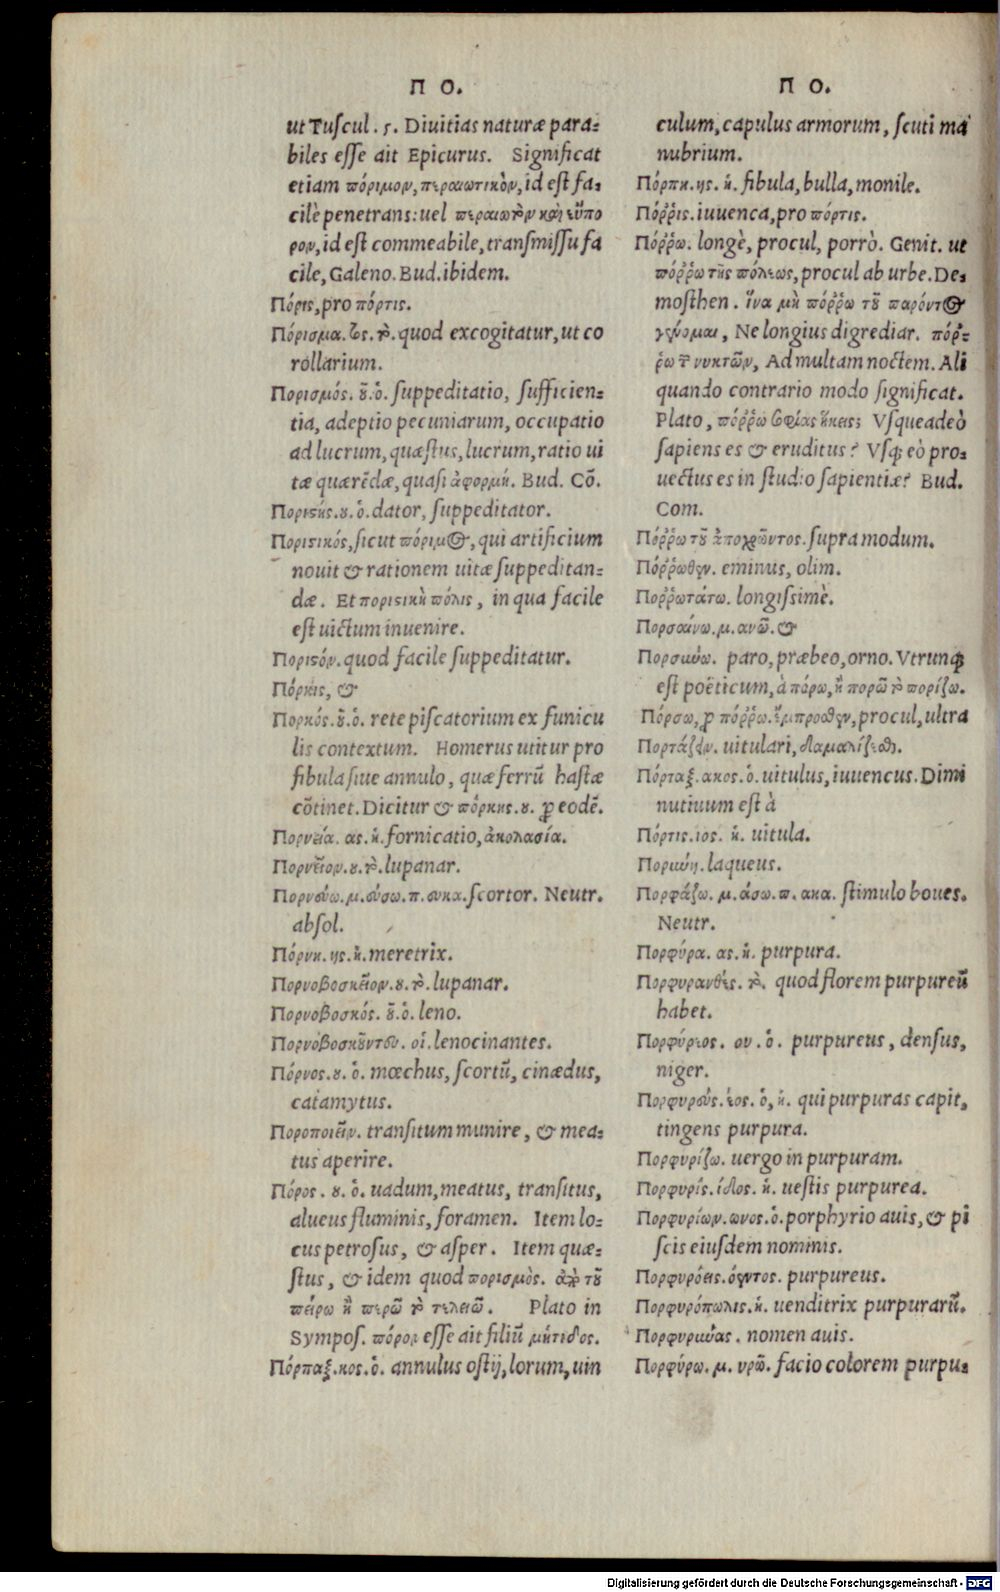 Π Ο.
ut Tuscul. 5. Diuitias naturæ para-
biles esse ait Epicurus. Significat
etiam πόριμον, περαιωτικὸν, id est fa-
cilè penetrans: uel περαιωτὸν καὶ εὔπο
ρον, id est commeabile, transmissu fa
cile, Galeno. Bud. ibidem.
Πόρις, pro πόρτις.
Πόρισμα. τος. τὸ. quod excogitatur, ut co
rollarium.
Πορισμός. οῦ. ὁ. suppeditatio, sufficien-
tia, adeptio pecuniarum, occupatio
ad lucrum, quæstus, lucrum, ratio ui
tæ quærēdæ, quasi ἀφορμή. Bud. Cō.
Ποριστής. ου. ὁ. dator, suppeditator.
Ποριστικός, sicut πόριμος, qui artificium
nouit & rationem uitæ suppeditan-
dæ. Et ποριστικὴ πόλις, in qua facile
est uictum inuenire.
Ποριστόν. quod facile suppeditatur.
Πόρκης, &
Πορκός. οῦ. ὁ. rete piscatorium ex funicu
lis contextum. Homerus utitur pro
fibula siue annulo, quæ ferrū hastæ
cōtinet. Dicitur & πόρκης. ου. pro eodē.
Πορνεία. ας. ἡ. fornicatio, ἀκολασία.
Πορνεῖον. ου. τὸ. lupanar.
Πορνεύω. μ. εύσω. π. ευκα. scortor. Neutr.
absol.
Πόρνη. ης. ἡ. meretrix.
Πορνοβοσκεῖον. ου. τὸ. lupanar.
Πορνοβοσκός. οῦ. ὁ. leno.
Πορνοβοσκοῦντες. οἱ. lenocinantes.
Πόρνος. ου. ὁ. mœchus, scortū, cinædus,
catamytus.
Ποροποιεῖν. transitum munire, & mea-
tus aperire.
Πόρος. ου. ὁ. uadum, meatus, transitus,
alueus fluminis, foramen. Item lo-
cus petrosus, & asper. Item quæ-
stus, & idem quod πορισμὸς. ἀπὸ τοῦ
πείρω ἢ περῶ τὸ τελειῶ. Plato in
Sympos. πόρον esse ait filiū μήτιδος.
Πόρπαξ. κος. ὁ. annulus ostij, lorum, uin
Π Ο.
culum, capulus armorum, scuti ma
nubrium.
Πόρπη. ης. ἡ. fibula, bulla, monile.
Πόῤῥις. iuuenca, pro πόρτις.
Πόῤῥω. longè, procul, porrò. Genit. ut
πόῤῥω τῆς πόλεως, procul ab urbe. De-
mosthen. ἵνα μὴ πόῤῥω τοῦ παρόντος
γένομαι, Ne longius digrediar. πόρ-
ῥω τ νυκτῶν, Ad multam noctem. Ali
quando contrario modo significat.
Plato, πόῤῥω σοφίας ἥκεις; Vsque adeò
sapiens es & eruditus? Vsq; eò pro-
uectus es in studio sapientiæ? Bud.
Com.
Πόῤῥω τοῦ ἀποχρῶντος. supra modum.
Πόῤῥωθεν. eminus, olim.
Ποῤῥωτάτω. longissimè.
Πορσαίνω. μ. ανῶ. &
Πορσύνω. paro, præbeo, orno. Vtrunq;
est poëticum, à πόρω, ἢ πορῶ τὸ πορίζω.
Πόρσω, pro πόῤῥω. ἔμπροσθεν, procul, ultra
Πορτάζειν. uitulari, δαμαλίζεσθαι.
Πόρταξ. ακος. ὁ. uitulus, iuuencus. Dimi
nutiuum est à
Πόρτις. ιος. ἡ. uitula.
laqueus.
Πορφάζω. μ. άσω. π. ακα. stimulo boues.
Neutr.
Πορφύρα. ας. ἡ. purpura.
Πορφυρανθές. τὸ. quod florem purpureū
habet.
Πορφύρεος. ου. ὁ. purpureus, densus,
niger.
Πορφυρεύς. έος. ὁ, ἡ. qui purpuras capit,
tingens purpura.
Πορφυρίζω. uergo in purpuram.
Πορφυρίς. ίδος. ἡ. uestis purpurea.
Πορφυρίων. ωνος. ὁ. porphyrio auis, & pi
scis eiusdem nominis.
Πορφυρόεις. όεντος. purpureus.
Πορφυρόπωλις. ἡ. uenditrix purpurarū.
nomen auis.
Πορφύρω. μ. υρῶ. facio colorem purpu-
Digitalisierung gefördert durch die Deutsche Forschungsgemeinschaft - DFG